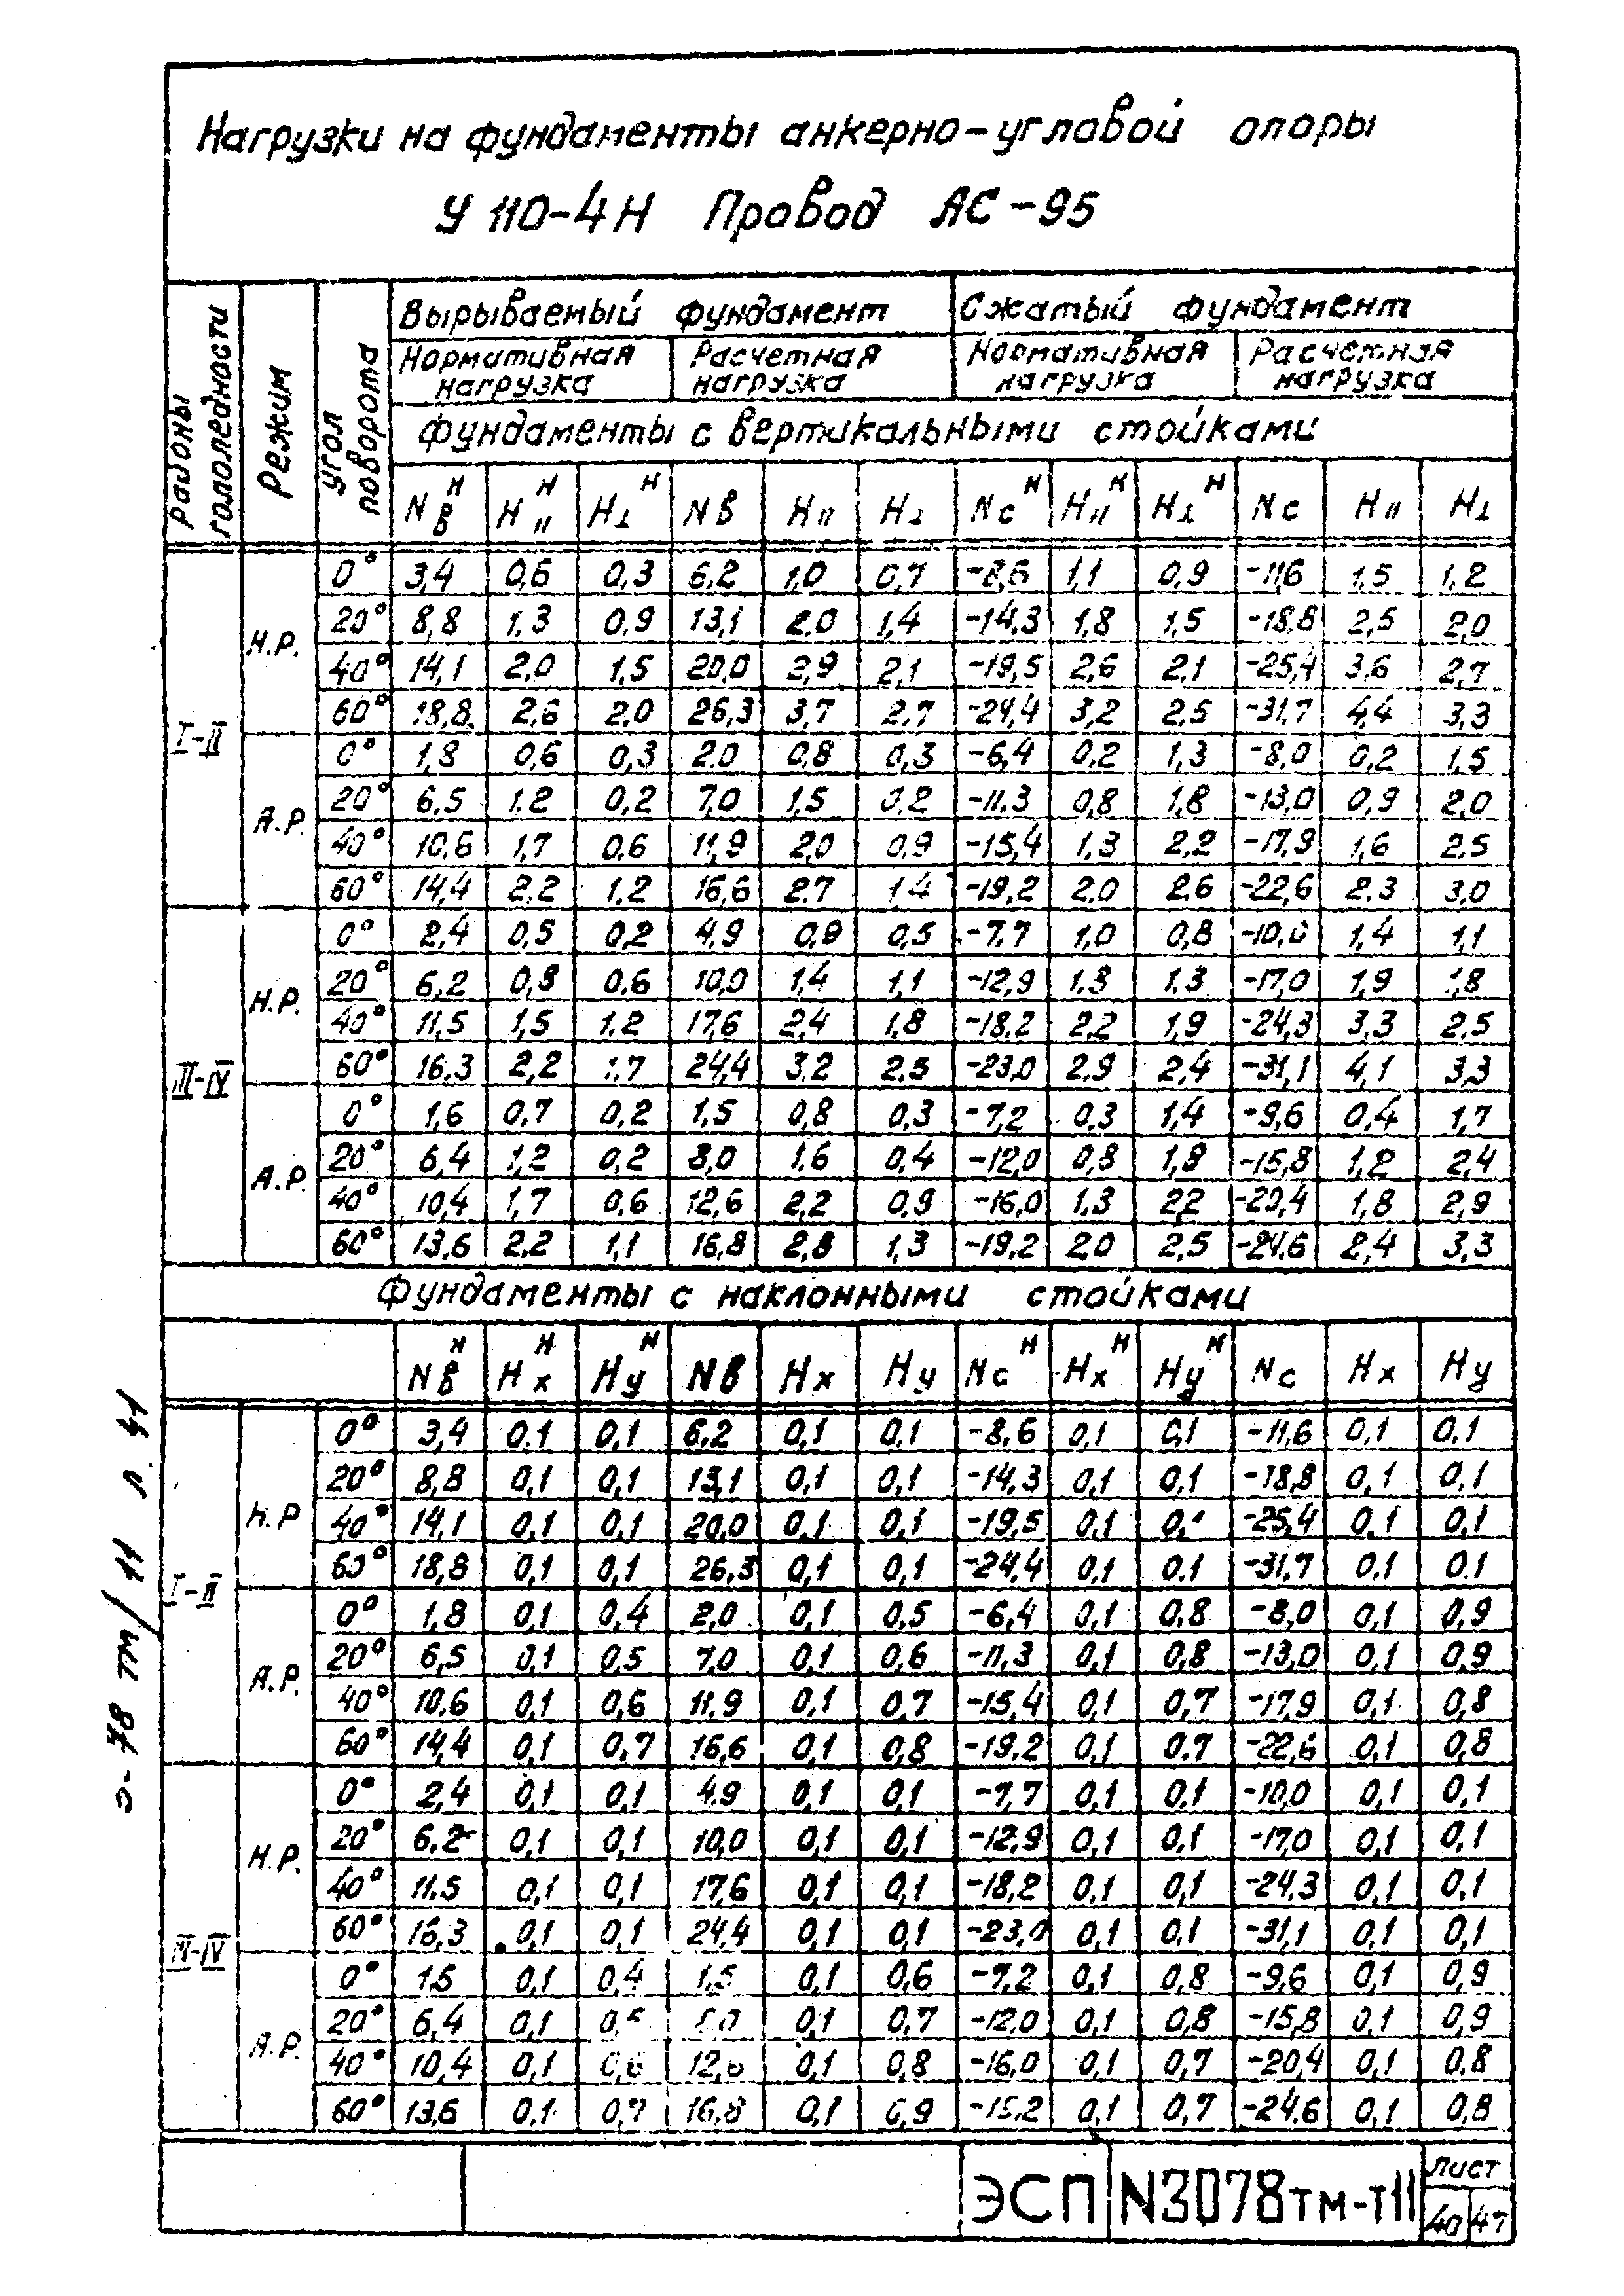 Нагрузки на фундаменты анкерно-угловой опоры
У 110-4Н Провод АС-95
Районы гололедности
Режим
Угол поворота
Вырываемый фундамент Сжатый фундамент
Нормативная нагрузка Расчетная нагрузка Нормативная нагрузка Расчетная нагрузка
Фундаменты с вертикальными стойками
Nв^н H॥^н H⊥^н Nв H॥ H⊥ Nс^н H॥^н H⊥^н Nс H॥ H⊥
I-II
Н.Р.
0° 3,4 0,6 0,3 6,2 1,0 0,7 -8,6 1,1 0,9 -11,6 1,5 1,2
20° 8,8 1,3 0,9 13,1 2,0 1,4 -14,3 1,8 1,5 -18,8 2,5 2,0
40° 14,1 2,0 1,5 20,0 2,9 2,1 -19,5 2,6 2,1 -25,4 3,6 2,7
60° 18,8 2,6 2,0 26,3 3,7 2,7 -24,4 3,2 2,5 -31,7 4,4 3,3
А.Р.
0° 1,8 0,6 0,3 2,0 0,8 0,3 -6,4 0,2 1,3 -8,0 0,2 1,5
20° 6,5 1,2 0,2 7,0 1,5 0,2 -11,3 0,8 1,8 -13,0 0,9 2,0
40° 10,6 1,7 0,6 11,9 2,0 0,9 -15,4 1,3 2,2 -17,9 1,6 2,5
60° 14,4 2,2 1,2 16,6 2,7 1,4 -19,2 2,0 2,6 -22,6 2,3 3,0
III-IV
Н.Р.
0° 2,4 0,5 0,2 4,9 0,9 0,5 -7,7 1,0 0,8 -10,0 1,4 1,1
20° 6,2 0,8 0,6 10,0 1,4 1,1 -12,9 1,3 1,3 -17,0 1,9 1,8
40° 11,5 1,5 1,2 17,6 2,4 1,8 -18,2 2,2 1,9 -24,3 3,3 2,5
60° 16,3 2,2 1,7 24,4 3,2 2,5 -23,0 2,9 2,4 -31,1 4,1 3,3
А.Р.
0° 1,6 0,7 0,2 1,5 0,8 0,3 -7,2 0,3 1,4 -9,6 0,4 1,7
20° 6,4 1,2 0,2 8,0 1,6 0,4 -12,0 0,8 1,8 -15,8 1,2 2,4
40° 10,4 1,7 0,6 12,6 2,2 0,9 -16,0 1,3 2,2 -20,4 1,8 2,9
60° 13,6 2,2 1,1 16,8 2,8 1,3 -19,2 2,0 2,5 -24,6 2,4 3,3
Фундаменты с наклонными стойками
Nв^н Hх^н Hу^н Nв Hх Hу Nс^н Hх^н Hу^н Nс Hх Hу
I-II
Н.Р
0° 3,4 0,1 0,1 6,2 0,1 0,1 -8,6 0,1 0,1 -11,6 0,1 0,1
20° 8,8 0,1 0,1 13,1 0,1 0,1 -14,3 0,1 0,1 -18,8 0,1 0,1
40° 14,1 0,1 0,1 20,0 0,1 0,1 -19,5 0,1 0,1 -25,4 0,1 0,1
60° 18,8 0,1 0,1 26,3 0,1 0,1 -24,4 0,1 0,1 -31,7 0,1 0,1
А.Р.
0° 1,8 0,1 0,4 2,0 0,1 0,5 -6,4 0,1 0,8 -8,0 0,1 0,9
20° 6,5 0,1 0,5 7,0 0,1 0,6 -11,3 0,1 0,8 -13,0 0,1 0,9
40° 10,6 0,1 0,6 11,9 0,1 0,7 -15,4 0,1 0,7 -17,9 0,1 0,8
60° 14,4 0,1 0,7 16,6 0,1 0,8 -19,2 0,1 0,7 -22,6 0,1 0,8
III-IV
Н.Р.
0° 2,4 0,1 0,1 4,9 0,1 0,1 -7,7 0,1 0,1 -10,0 0,1 0,1
20° 6,2 0,1 0,1 10,0 0,1 0,1 -12,9 0,1 0,1 -17,0 0,1 0,1
40° 11,5 0,1 0,1 17,6 0,1 0,1 -18,2 0,1 0,1 -24,3 0,1 0,1
60° 16,3 0,1 0,1 24,4 0,1 0,1 -23,0 0,1 0,1 -31,1 0,1 0,1
А.Р.
0° 1,6 0,1 0,4 1,5 0,1 0,6 -7,2 0,1 0,8 -9,6 0,1 0,9
20° 6,4 0,1 0,5 0,1 0,7 -12,0 0,1 0,8 -15,8 0,1 0,9
40° 10,4 0,1 0,6 12,6 0,1 0,8 -16,0 0,1 0,7 -20,4 0,1 0,8
60° 13,6 0,1 0,7 16,8 0,1 0,9 -15,2 0,1 0,7 -24,6 0,1 0,8
78 тм/11 л. 41
ЭСП N3078тм-Т11 Лист
40 47